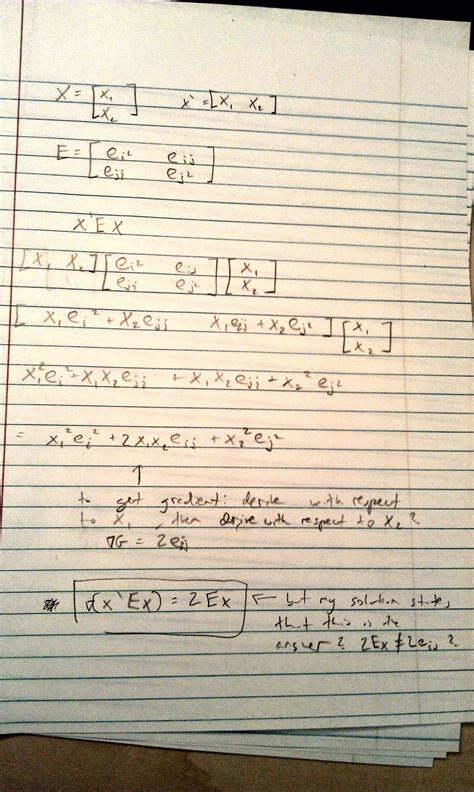 X = [x₁ x₂]   x` = [x₁ x₂]
E = [eᵢ² eᵢⱼ
eⱼᵢ eⱼ²]
x`EX
[x₁ x₂] [eᵢ² eᵢⱼ eⱼᵢ eⱼ²] [x₁ x₂]
[ x₁eᵢ² + x₂eⱼᵢ   x₁eᵢⱼ + x₂eⱼ² ] [x₁ x₂]
x₁²eᵢ² + x₁x₂eⱼᵢ + x₁x₂eᵢⱼ + x₂²eⱼ²
= x₁²eᵢ² + 2x₁x₂eᵢⱼ + x₂²eⱼ²
↑
to get gradient: derive with respect
to x₁, then derive with respect to x₂?
∇G = 2eᵢⱼ
* d(x`Ex) = 2Ex ← but my solution states
that this is the
answer? 2Ex ≠ 2eᵢⱼ?